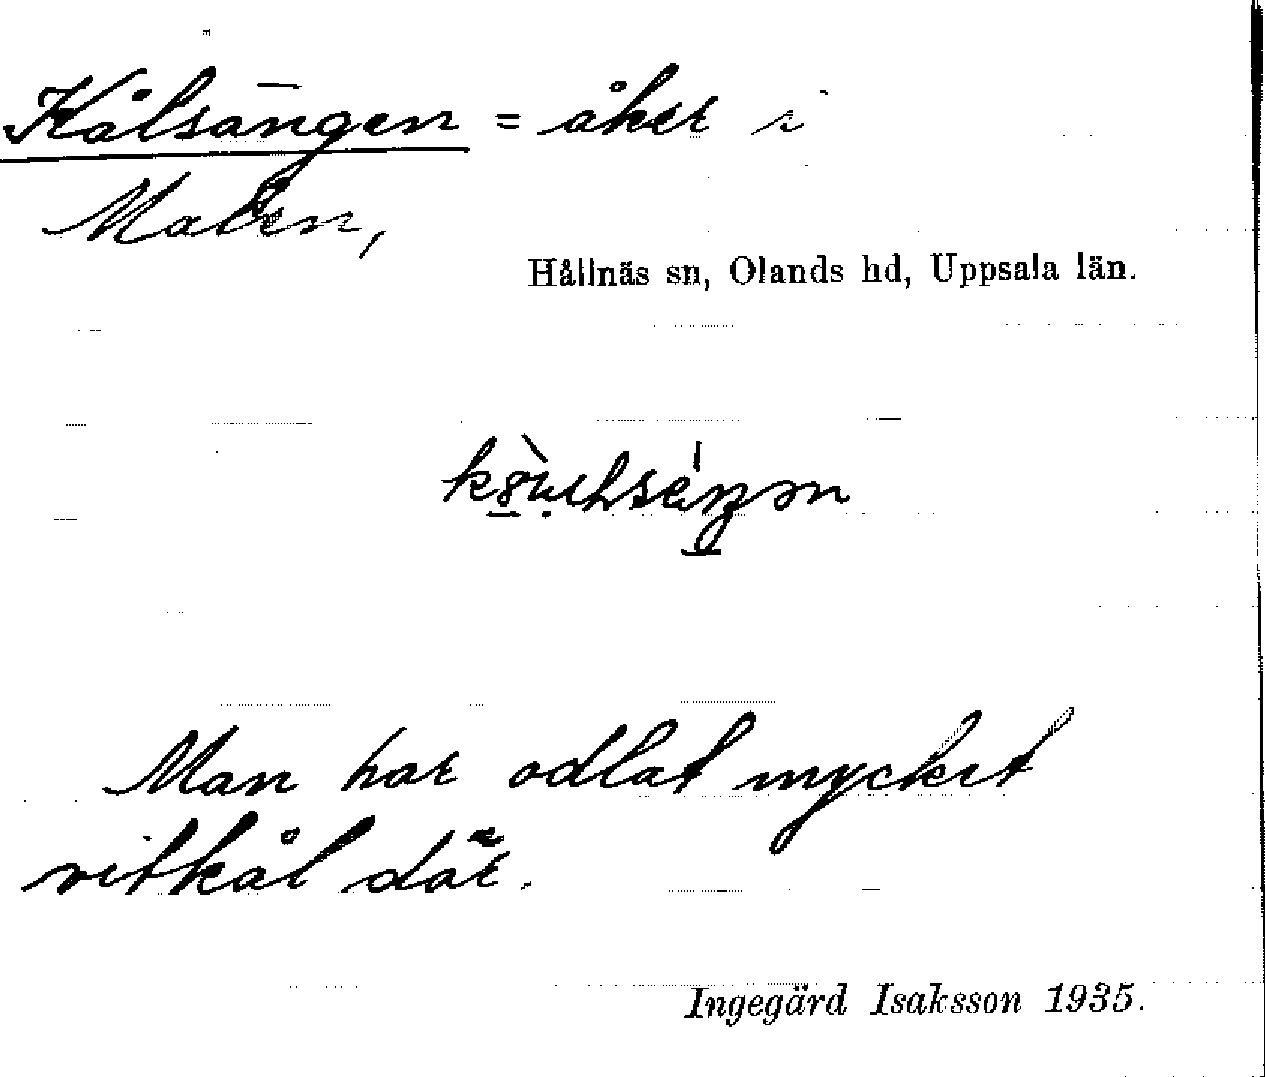 Kålsängen = åker i
Maren,
Hållnäs sn, Olands hd, Uppsala län.
Man har odlat mycket
vitkål där.
Ingegärd Isaksson 1935.